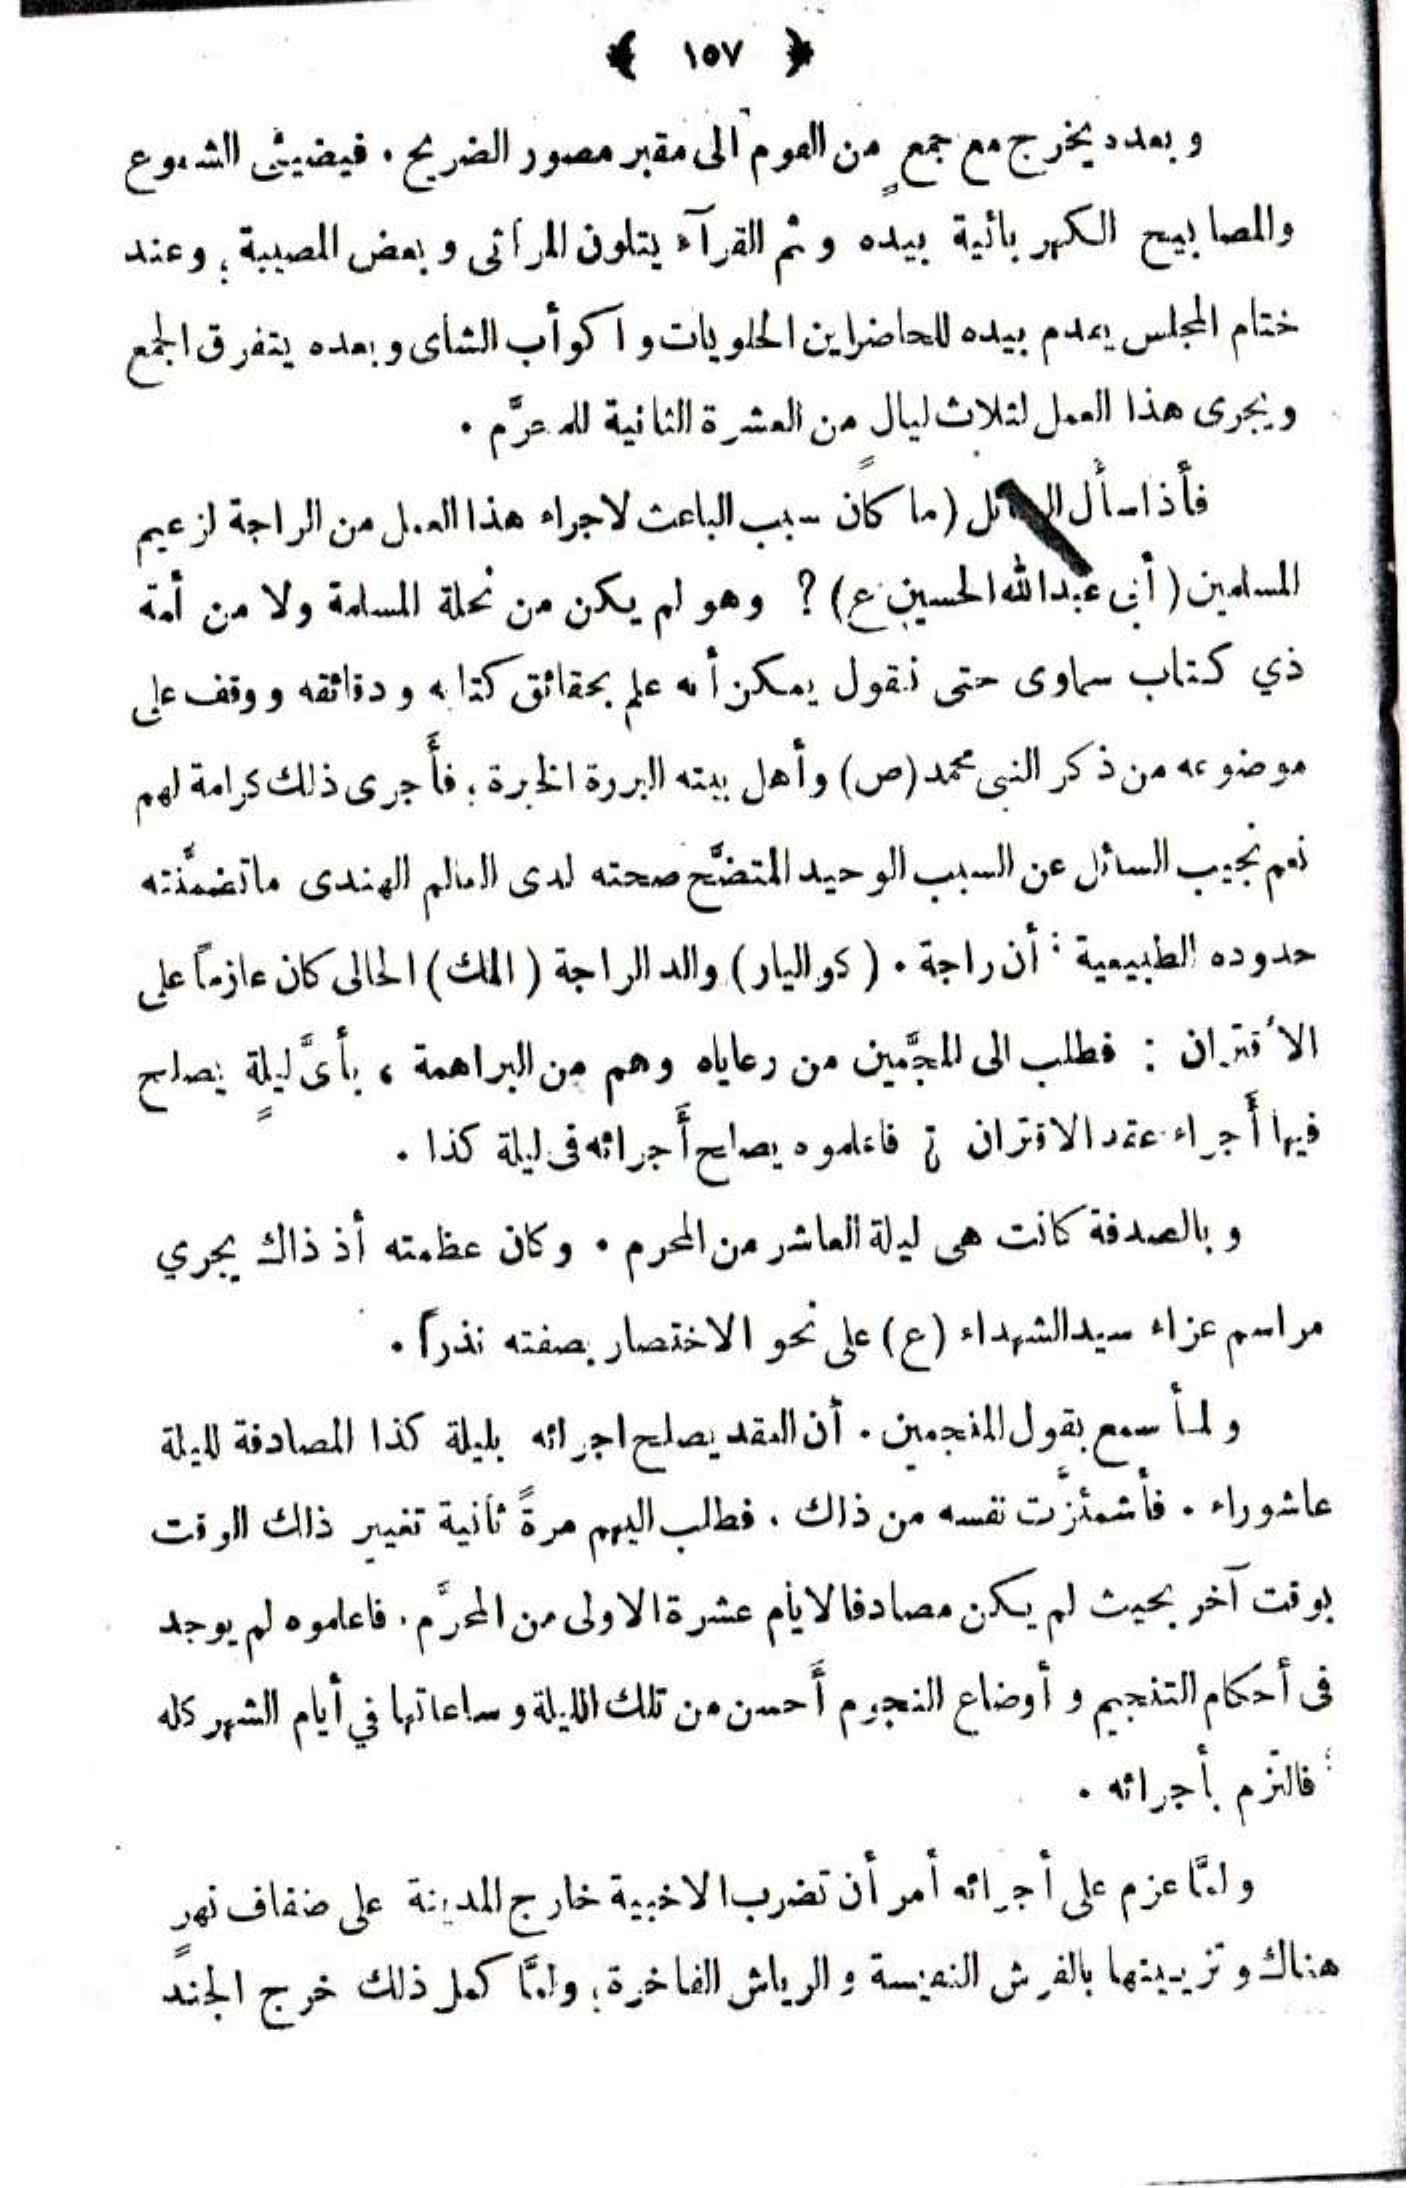 ﴿ ١٥٧ ﴾
و بعده يخرج مع جمعٍ من القوم الى مقبر مصور الضريح . فيضيئى الشموع
والمصابيح الكهربائية بيده وثم القرآء يتلون المرأتى وبعض المصيبة ؛ وعند
ختام المجلس يقدم بيده للحاضراين الحلويات و اكوأب الشاى وبعده يتفرق الجمع
ويجرى هذا العمل لثلاث ليالٍ من العشرة الثانية للمحرَّم .
فأذا سأل السائل ( ما كان سبب الباعث لاجراء هذا العمل من الراجة لزعيم
المسلمين ( أبى عبدالله الحسين ع ) ؟ وهو لم يكن من نحلة المسلمة ولا من أمة
ذي كتاب سماوى حتى نقول يمكن أنه علم بحقائق كتابه و دقائقه ووقف على
موضوعه من ذكر النبى محمد (ص) وأهل بيته البررة الخيرة ؛ فأَجرى ذلك كرامة لهم
نعم نجيب السائل عن السبب الوحيد المتضَّح صحته لدى العالم الهندى ماتضمَّنته
حدوده الطبيعية : أن راجة . ( كواليار ) والد الراجة ( الملك ) الحالى كان عازماً على
الأقتران : فطلب الى المنجَّمين من رعاياه وهم من البراهمة ، بأىَّ ليلةٍ يصلح
فيها أَجراء عقد الاقتران ؟ فاعلموه يصلح أَجرائه فى ليلة كذا .
و بالصدفة كانت هى ليلة العاشر من المحرم . وكان عظمته أذ ذاك يجري
مراسم عزاء سيد الشهداء (ع) على نحو الاختصار بصفته نذراً .
و لمأ سمع بقول المنجمين . أن العقد يصلح اجرائه بليلة كذا المصادفة لليلة
عاشوراء . فأشمئزَّت نفسه من ذاك . فطلب اليهم مرةً ثانية تغيير ذاك الوقت
بوقت آخر بحيث لم يكن مصادفا لايأم عشرة الاولى من المحرَّم . فاعلموه لم يوجد
فى أحكام التنجيم و أوضاع النجوم أَحسن من تلك الليلة و ساعاتها في أيام الشهر كله
؛ فالتزم بأجرائه .
و لمَّا عزم على أجرائه أمر أن تضرب الاخبية خارج المدينة على ضفاف نهرٍ
هناك و تزيينها بالفرش النفيسة و الرياش الفاخرة ؛ ولمَّا كمل ذلك خرج الجند